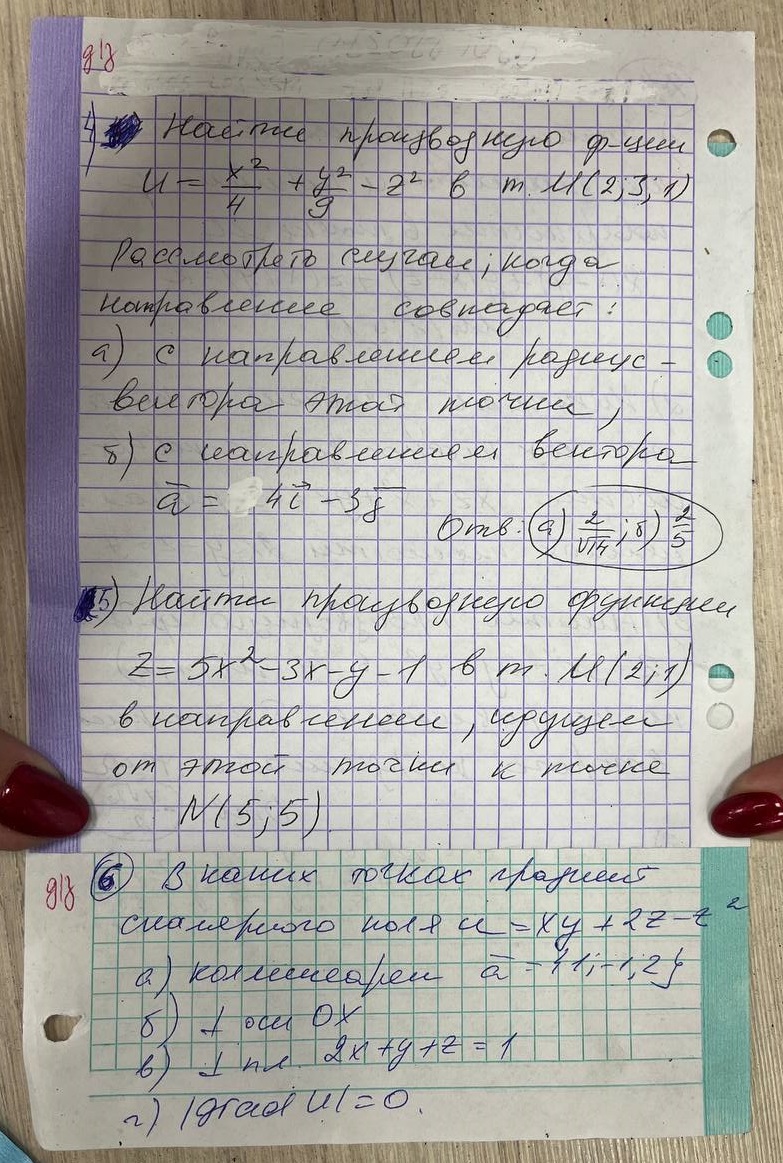 д/з
4) Найти производную ф-ции
u = x²/4 + y²/9 - z² в т. M(2;3;1)
Рассмотреть случаи, когда
направление совпадает:
а) с направлением радиус-
вектора этой точки,
б) с направлением вектора
a̅ = 4i⃗ - 3j̅
Отв: а) 2/√14; б) 2/5
5) Найти производную функции
z = 5x² - 3x - y - 1 в т. M(2;1)
в направлении, идущем
от этой точки к точке
N(5;5)
д/з
6 В каких точках градиент
скалярного поля u = xy + 2z - z²
а) коллинеарен a̅ = {1;-1;2}
б) ⊥ оси OX
в) ⊥ пл. 2x+y+z=1
г) |grad u| = 0.